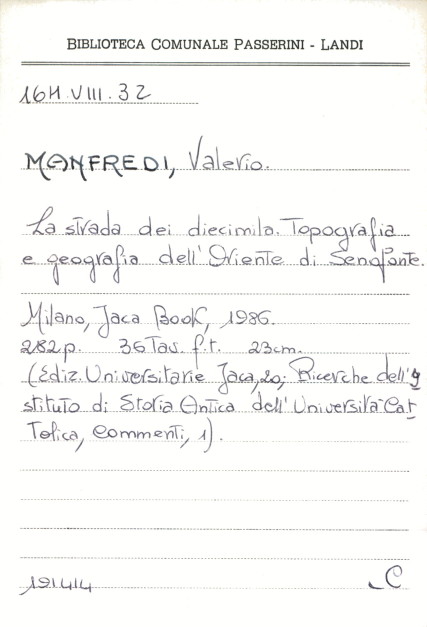 BIBLIOTECA COMUNALE PASSERINI - LANDI
16H.VIII.32
MANFREDI, Valerio.
La strada dei diecimila. Topografia
e geografia dell'Oriente di Senofonte.
Milano, Jaca Book, 1986.
282p. 36 Tav. f.t. 23cm.
(Ediz. Universitarie Jaca, 20; Ricerche dell'I
stituto di Storia Antica dell'Università Cat
tolica, Commenti, 1).
191414
C